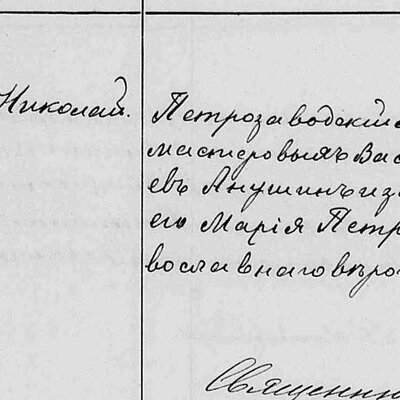 Николай.
Петрозаводскій
мастеровыхъ Вас
евъ Анушинъ и з
его Марія Петр
вославнаго вѣро
Священни